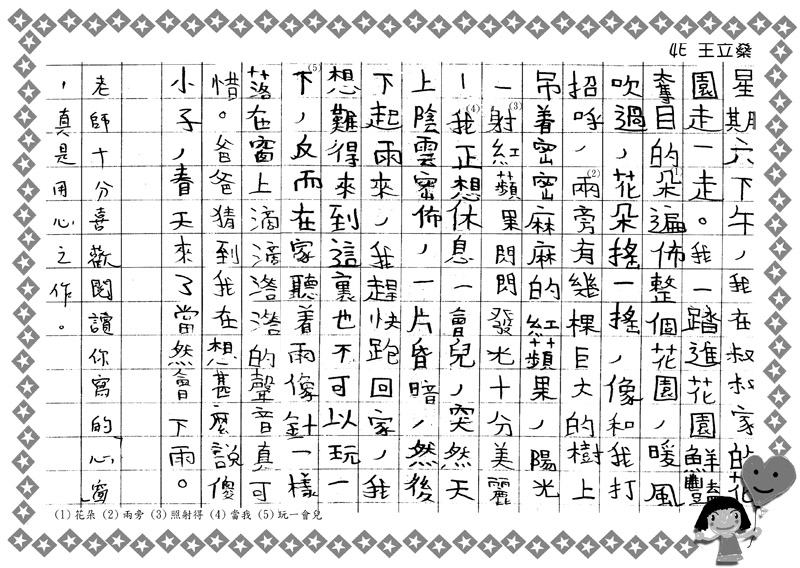 4E 王立燊
星期六下午，我在叔叔家的花
園走一走。我一踏進花園鮮豔
奪目的朵(1)遍佈整個花園，暖風
吹過，花朵搖一搖，像和我打
招呼，雨(2)旁有幾棵巨大的樹上
吊着密密麻麻的紅蘋果，陽光
一射(3)紅蘋果閃閃發光十分美麗
！我(4)正想休息一會兒，突然天
上陰雲密佈，一片昏暗，然後
下起雨來，我趕快跑回家，我
想難得來到這裏也不可以玩一
下(5)，反而在家聽着雨像針一樣
落在窗上滴滴的聲音真可
惜。爸爸猜到我在想甚麼說傻
小子，春天來了當然會下雨。
老師十分喜歡閱讀你寫的「心窗」
，真是用心之作。
(1) 花朵 (2) 兩旁 (3) 照射得 (4) 當我 (5) 玩一會兒